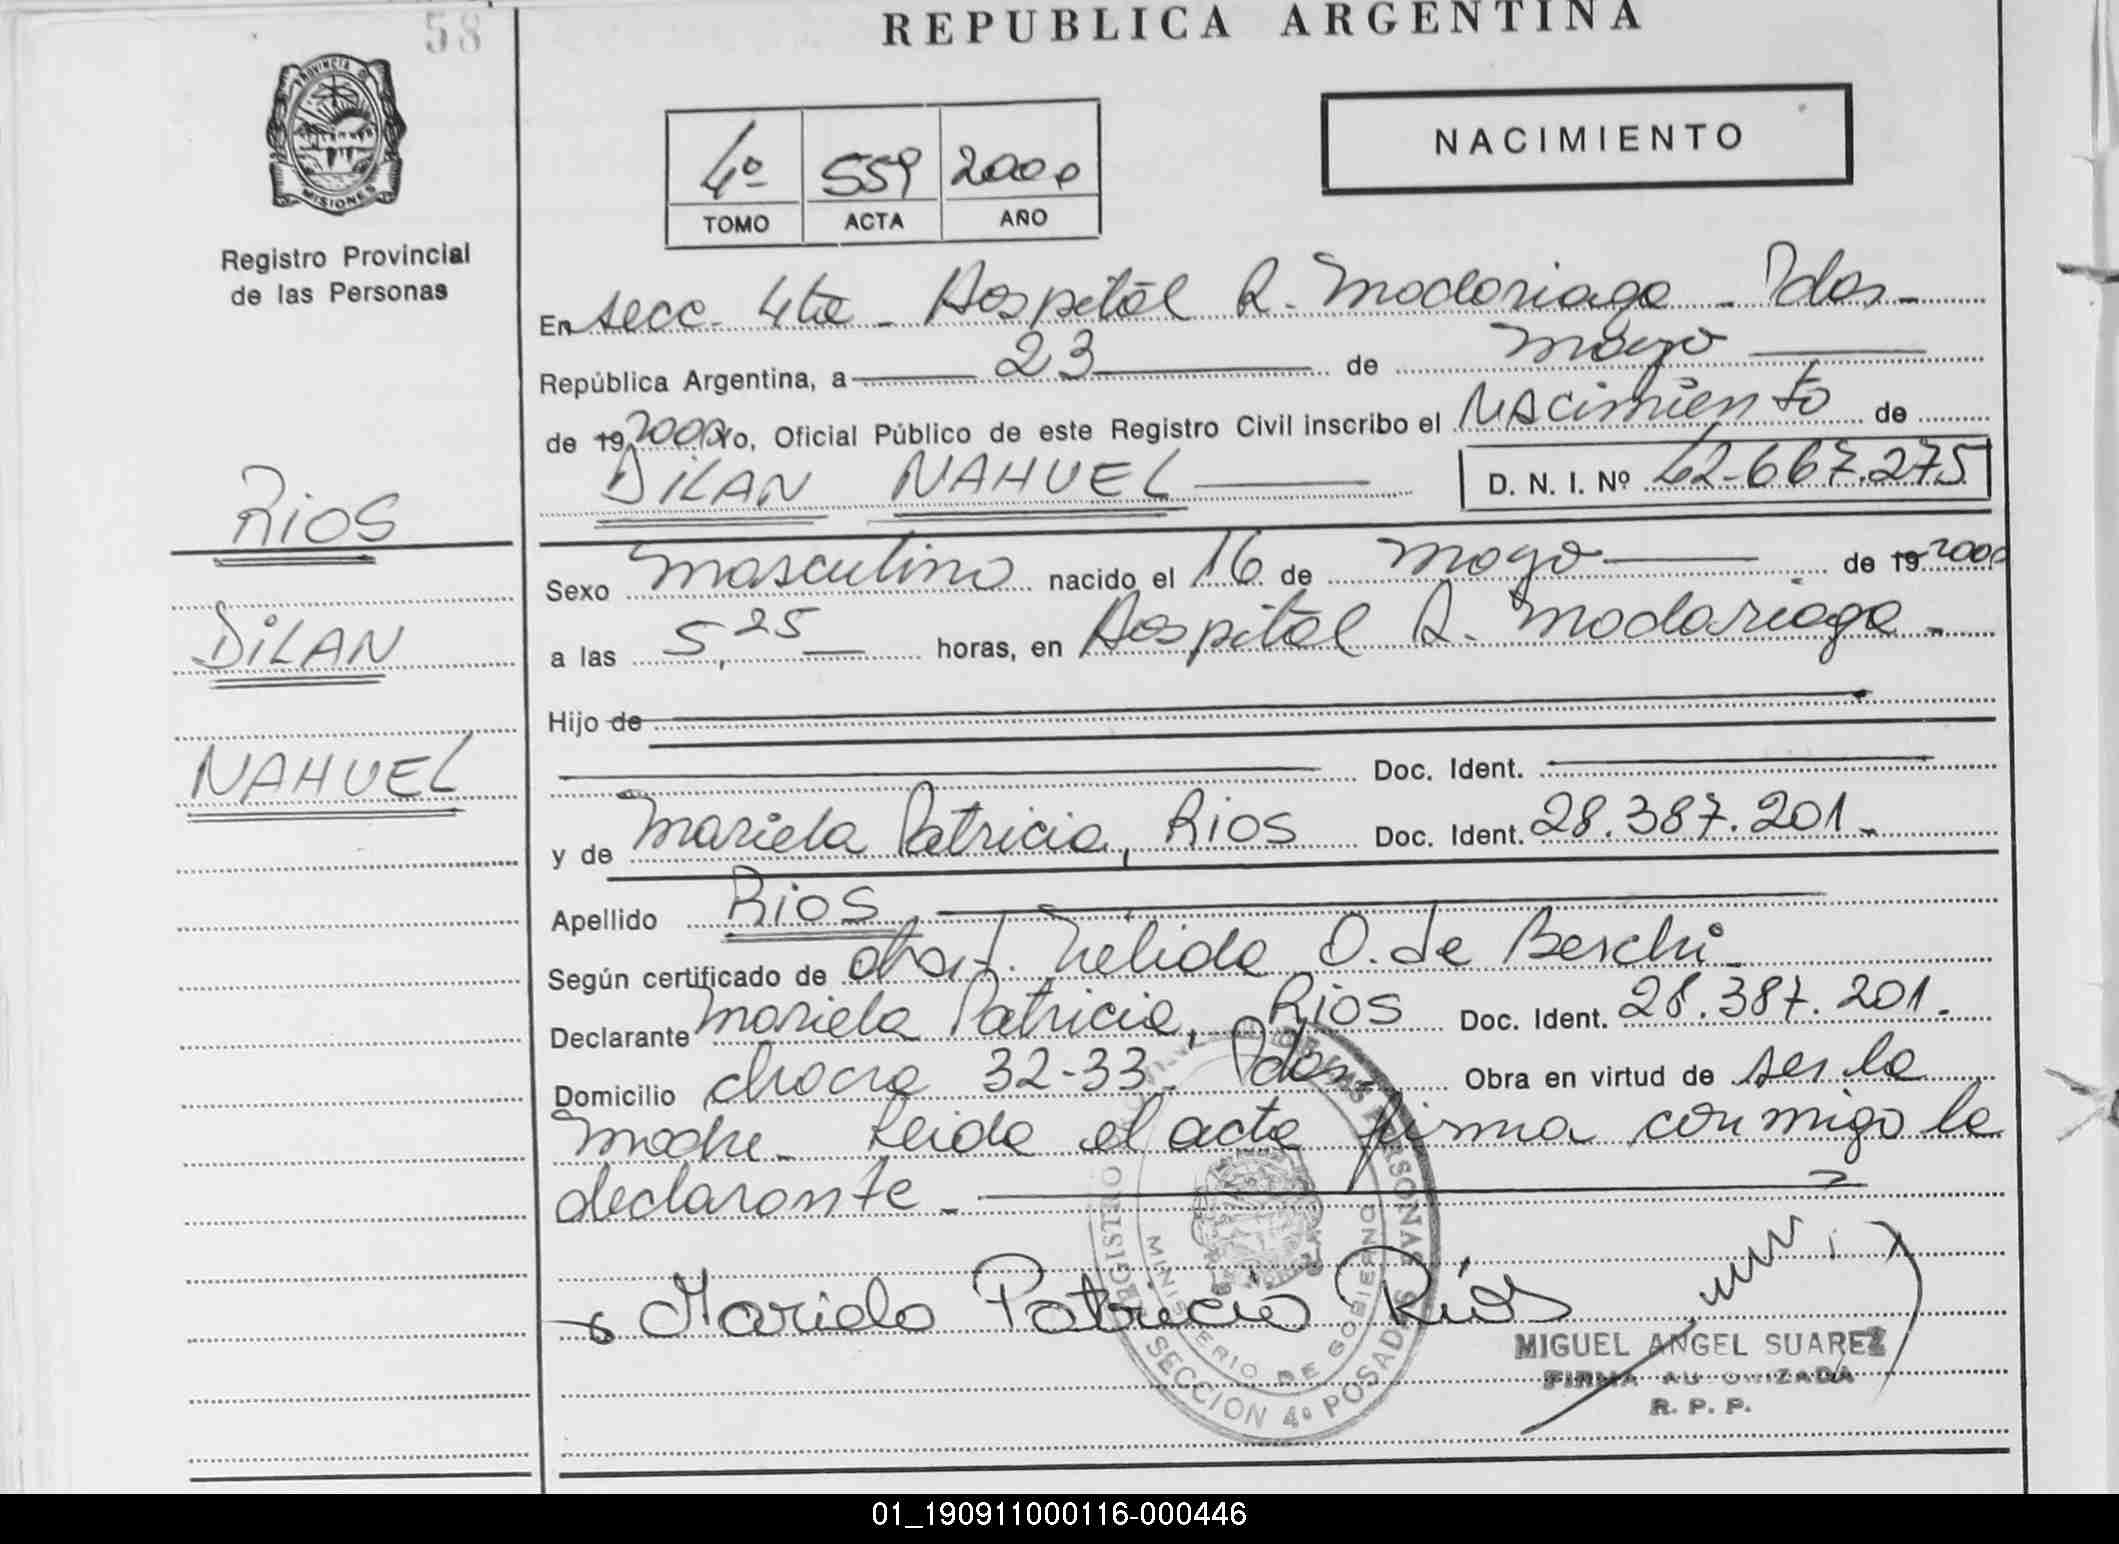 58
REPUBLICA ARGENTINA
PROVINCIA DE
MISIONES
Registro Provincial
de las Personas
4º 559 2000
TOMO ACTA AÑO
NACIMIENTO
En secc. 4ta - Hospital R. Madariaga - Pdas -
República Argentina, a 23 de mayo
de 19 2000 Yo, Oficial Público de este Registro Civil inscribo el Nacimiento de
DiLAN NAHUEL D. N. I. Nº 42-667.275
RiOS
DiLAN
NAHUEL
Sexo masculino nacido el 16 de mayo de 19 2000
a las 5,25 horas, en Hospital R. Madariaga -
Hijo de
Doc. Ident.
y de Mariela Patricia, RiOS Doc. Ident. 28.387.201.-
Apellido RiOS
Según certificado de obst. Nélida O. de Beschi -
Declarante Mariela Patricia, RiOS Doc. Ident. 28.387.201.
Domicilio chacra 32-33 - Pdas - Obra en virtud de ser la
madre - Leida el acta firma conmigo la
declarante -
Mariela Patricia Ríos
REGISTRO PROVINCIAL DE LAS PERSONAS
MINISTERIO DE GOBIERNO
SECCION 4º POSADAS
MIGUEL ANGEL SUAREZ
FIRMA AUTORIZADA
R. P. P.
01_190911000116-000446